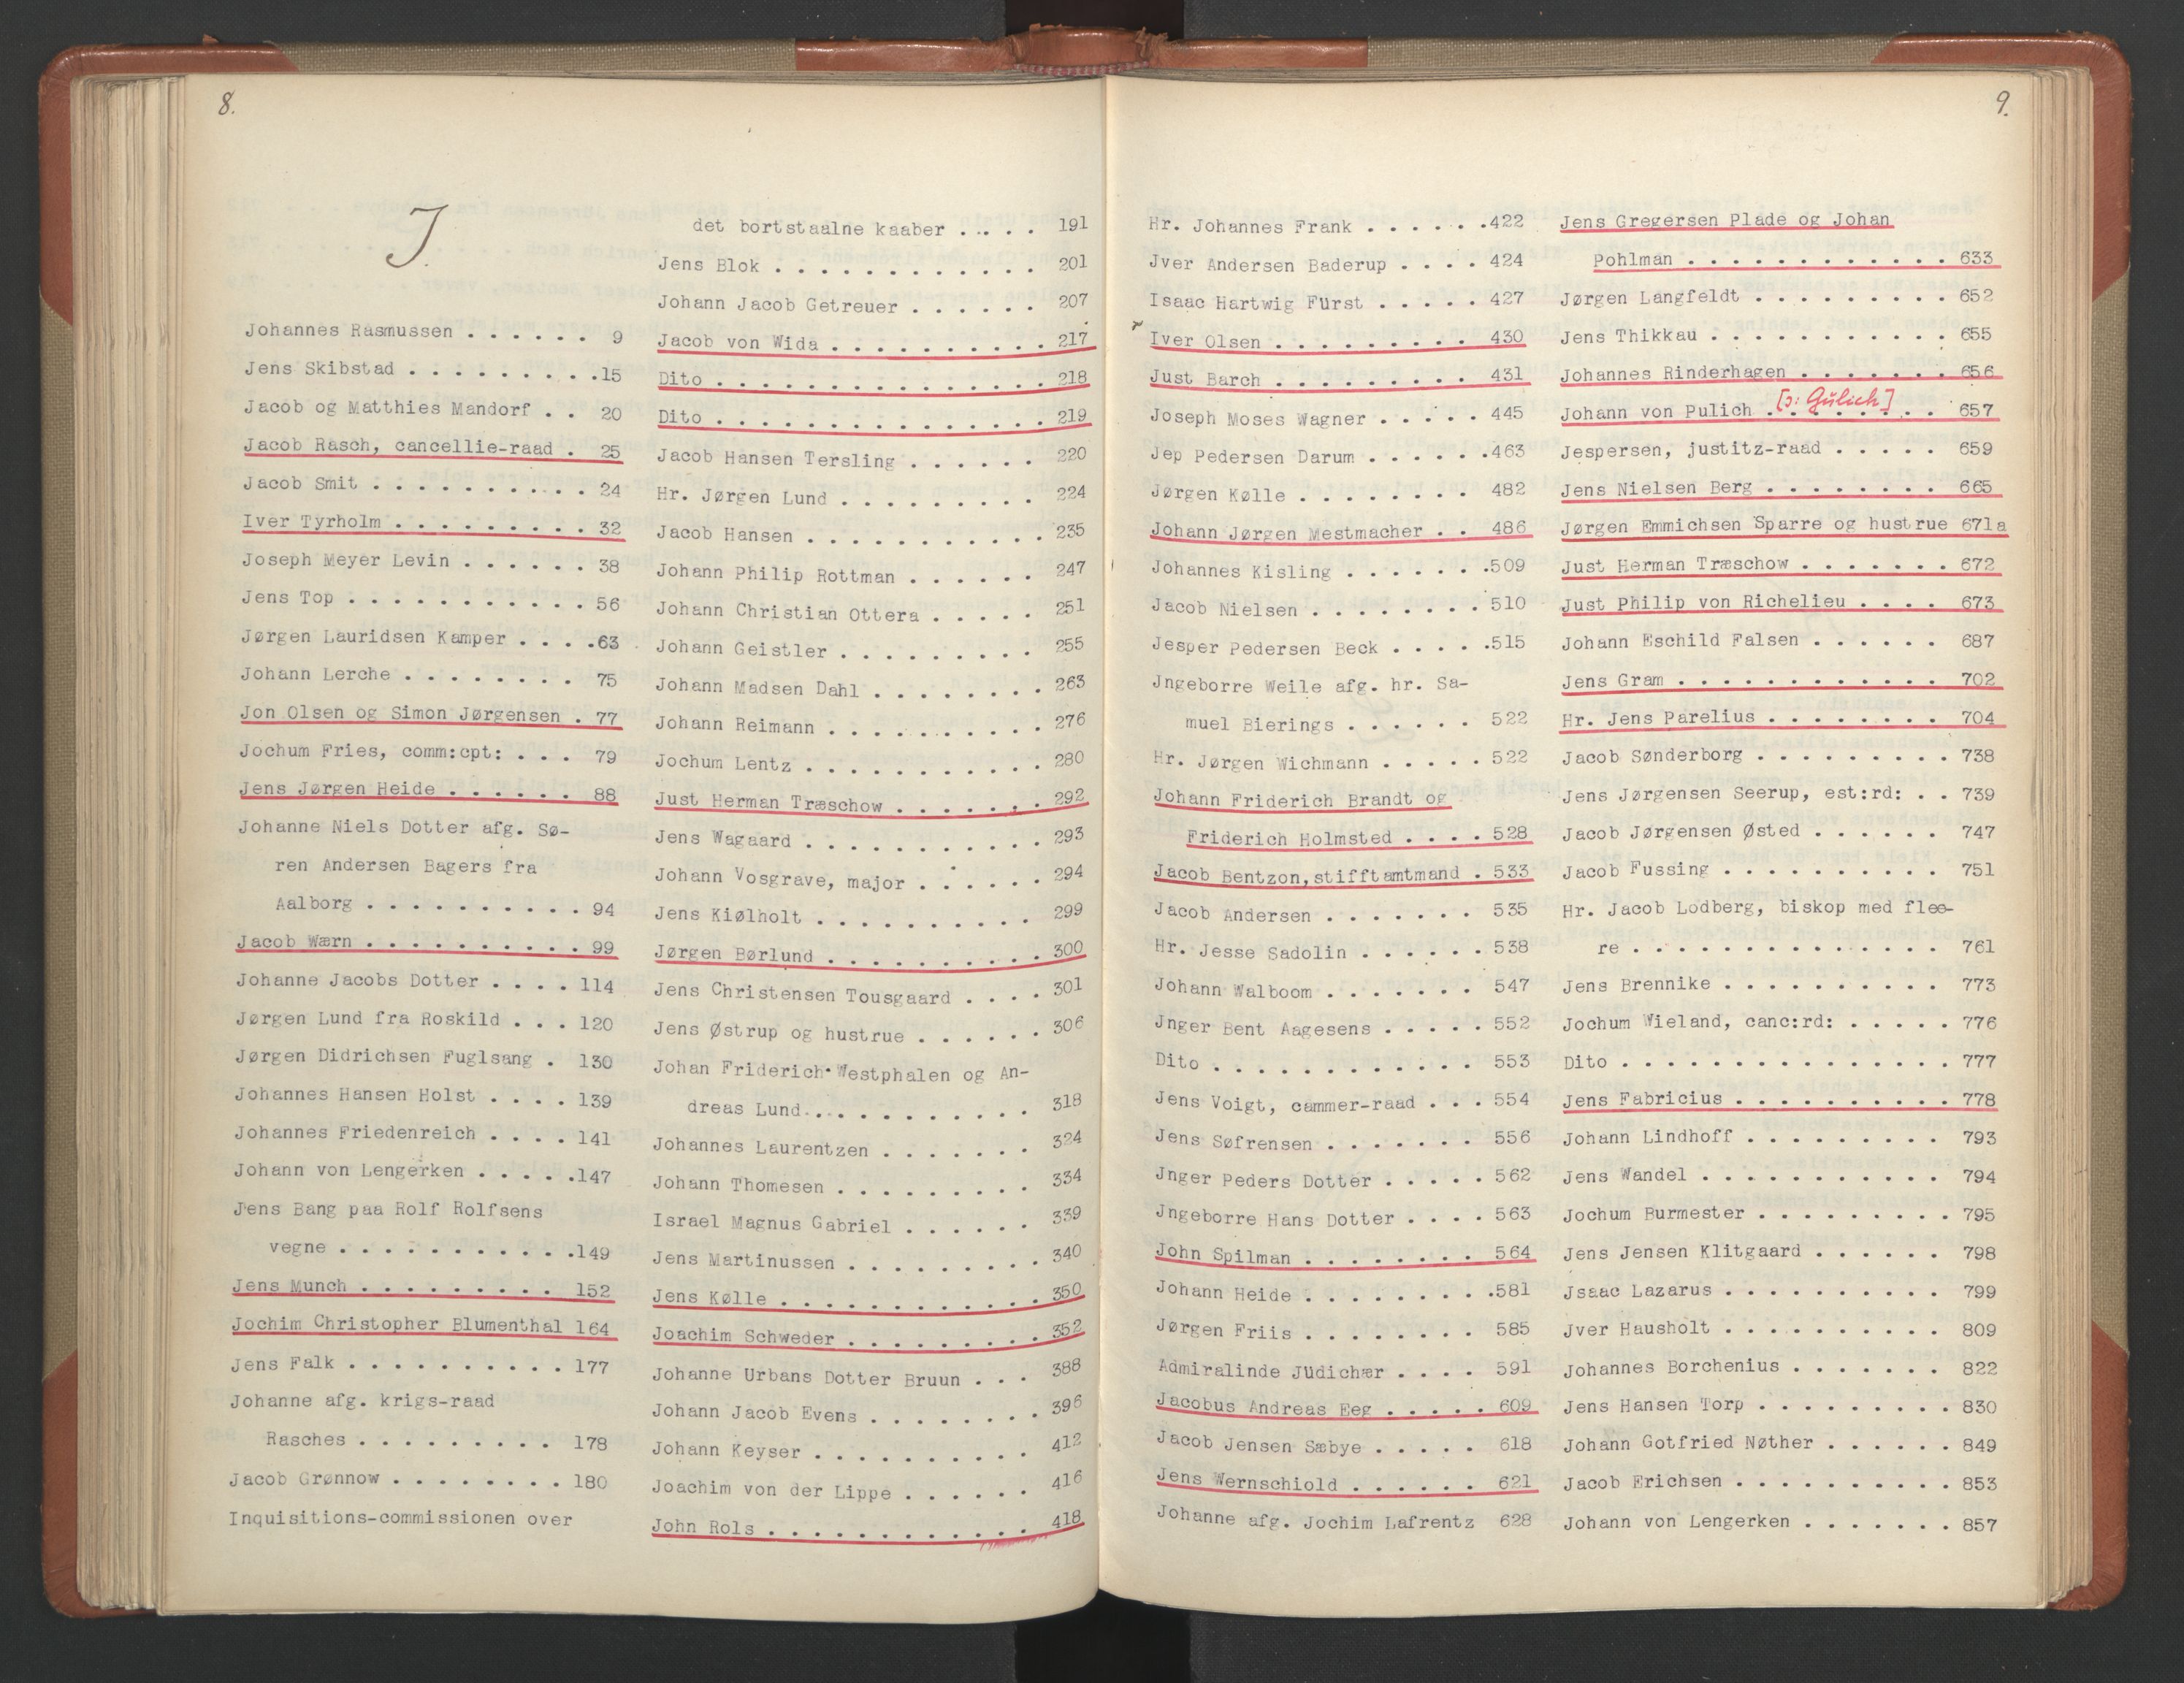 8.
J.
Johannes Rasmussen . . . . . . 9
Jens Skibstad . . . . . . . . .15
Jacob og Matthies Mandorf . . 20
Jacob Rasch, cancellie-raad . 25
Jacob Smit . . . . . . . . . . 24
Iver Tyrholm . . . . . . . . . 32
Joseph Meyer Levin . . . . . . 38
Jens Top . . . . . . . . . . . 56
Jørgen Lauridsen Kamper . . . .63
Johann Lerche . . . . . . . . 75
Jon Olsen og Simon Jørgensen . 77
Jochum Fries, comm:cpt: . . . 79
Jens Jørgen Heide . . . . . . 88
Johanne Niels Dotter afg. Sø-
ren Andersen Bagers fra
Aalborg . . . . . . . . . . 94
Jacob Wærn . . . . . . . . . . 99
Johanne Jacobs Dotter . . . . 114
Jørgen Lund fra Roskild . . . 120
Jørgen Didrichsen Fuglsang . 130
Johannes Hansen Holst . . . . 139
Johannes Friedenreich . . . . 141
Johann von Lengerken . . . . .147
Jens Bang paa Rolf Rolfsens
vegne . . . . . . . . . . .149
Jens Munch . . . . . . . . . 152
Jochim Christopher Blumenthal 164
Jens Falk . . . . . . . . . . 177
Johanne afg. krigs-raad
Rasches . . . . . . . . . 178
Jacob Grønnow . . . . . . . . 180
Inquisitions-commissionen over
det bortstaalne kaaber . . . . 191
Jens Blok . . . . . . . . . . . . 201
Johann Jacob Getreuer . . . . . . 207
Jacob von Wida . . . . . . . . . . 217
Dito . . . . . . . . . . . . . . . 218
Dito . . . . . . . . . . . . . . . 219
Jacob Hansen Tersling . . . . . . 220
Hr. Jørgen Lund . . . . . . . . . 224
Jacob Hansen . . . . . . . . . . . 235
Johann Philip Rottman . . . . . . 247
Johann Christian Ottera . . . . . 251
Johann Geistler . . . . . . . . . 255
Johann Madsen Dahl . . . . . . . . 263
Johann Reimann . . . . . . . . . . 276
Jochum Lentz . . . . . . . . . . . 280
Just Herman Træschow . . . . . . . 292
Jens Wagaard . . . . . . . . . . . 293
Johann Vosgrave, major . . . . . . 294
Jens Kiølholt . . . . . . . . . . 299
Jørgen Børlund . . . . . . . . . . 300
Jens Christensen Tousgaard . . . . 301
Jens Østrup og hustrue . . . . . . 306
Johan Friderich Westphalen og An-
dreas Lund. . . . . . . . . . . 318
Johannes Laurentzen . . . . . . . 324
Johann Thomesen . . . . . . . . . 334
Israel Magnus Gabriel . . . . . . 339
Jens Martinussen . . . . . . . . . 340
Jens Kølle . . . . . . . . . . . . 350
Joachim Schweder . . . . . . . . . 352
Johanne Urbans Dotter Bruun . . . 388
Johann Jacob Evens . . . . . . . . 396
Johann Keyser . . . . . . . . . . 412
Joachim von der Lippe . . . . . . 416
John Rols . . . . . . . . . . . . 418
9.
Hr. Johannes Frank . . . . . .422
Jver Andersen Baderup . . . . 424
Isaac Hartwig Fürst . . . . . 427
Iver Olsen . . . . . . . . . 430
Just Barch . . . . . . . . . 431
Joseph Moses Wagner . . . . . 445
Jep Pedersen Darum . . . . . .463
Jørgen Kølle . . . . . . . . 482
Johann Jørgen Mestmacher . . 486
Johannes Kisling . . . . . . .509
Jacob Nielsen . . . . . . . . 510
Jesper Pedersen Beck . . . . .515
Jngeborre Weile afg. hr. Sa-
muel Bierings . . . . . . 522
Hr. Jørgen Wichmann . . . . . 522
Johann Friderich Brandt og
Friderich Holmsted . . . . 528
Jacob Bentzon,stifftamtmand . 533
Jacob Andersen . . . . . . . 535
Hr. Jesse Sadolin . . . . . . 538
Johann Walboom . . . . . . . 547
Jnger Bent Aagesens . . . . . 552
Dito . . . . . . . . . . . . 553
Jens Voigt, cammer-raad . . . 554
Jens Søfrensen . . . . . . . 556
Jnger Peders Dotter . . . . . 562
Jngeborre Hans Dotter . . . . 563
John Spilman . . . . . . . . 564
Johann Heide . . . . . . . . .581
Jørgen Friis . . . . . . . . 585
Admiralinde Jüdichær . . . . 591
Jacobus Andreas Eeg . . . . . 609
Jacob Jensen Sæbye . . . . . 618
Jens Wernschiold . . . . . . 621
Johanne afg. Jochim Lafrentz 628
Jens Gregersen Plade og Johan
Pohlman . . . . . . . . . . . . 633
Jørgen Langfeldt . . . . . . . . . 652
Jens Thikkau . . . . . . . . . . . 655
Johannes Rinderhagen . . . . . . . 656
[ɔ: Gülich]
Johann von Pulich . . . . . . . . 657
Jespersen, justitz-raad . . . . . 659
Jens Nielsen Berg . . . . . . . . 665
Jørgen Emmichsen Sparre og hustrue 671a
Just Herman Træschow . . . . . . . 672
Just Philip von Richelieu . . . . 673
Johann Eschild Falsen . . . . . . 687
Jens Gram . . . . . . . . . . . . 702
Hr. Jens Parelius . . . . . . . . 704
Jacob Sønderborg . . . . . . . . . 738
Jens Jørgensen Seerup, est:rd: . . 739
Jacob Jørgensen Østed . . . . . . 747
Jacob Fussing . . . . . . . . . . 751
Hr. Jacob Lodberg, biskop med flee-
re . . . . . . . . . . . . . . 761
Jens Brennike . . . . . . . . . . 773
Jochum Wieland, canc:rd: . . . . . 776
Dito . . . . . . . . . . . . . . . 777
Jens Fabricius . . . . . . . . . . 778
Johann Lindhoff . . . . . . . . . 793
Jens Wandel . . . . . . . . . . . 794
Jochum Burmester . . . . . . . . . 795
Jens Jensen Klitgaard . . . . . . 798
Jsaac Lazarus . . . . . . . . . . 799
Jver Hausholt . . . . . . . . . . 809
Johannes Borchenius . . . . . . . 822
Jens Hansen Torp . . . . . . . . . 830
Johann Gotfried Nøther . . . . . . 849
Jacob Erichsen . . . . . . . . . . 853
Johann von Lengerken . . . . . . . 857